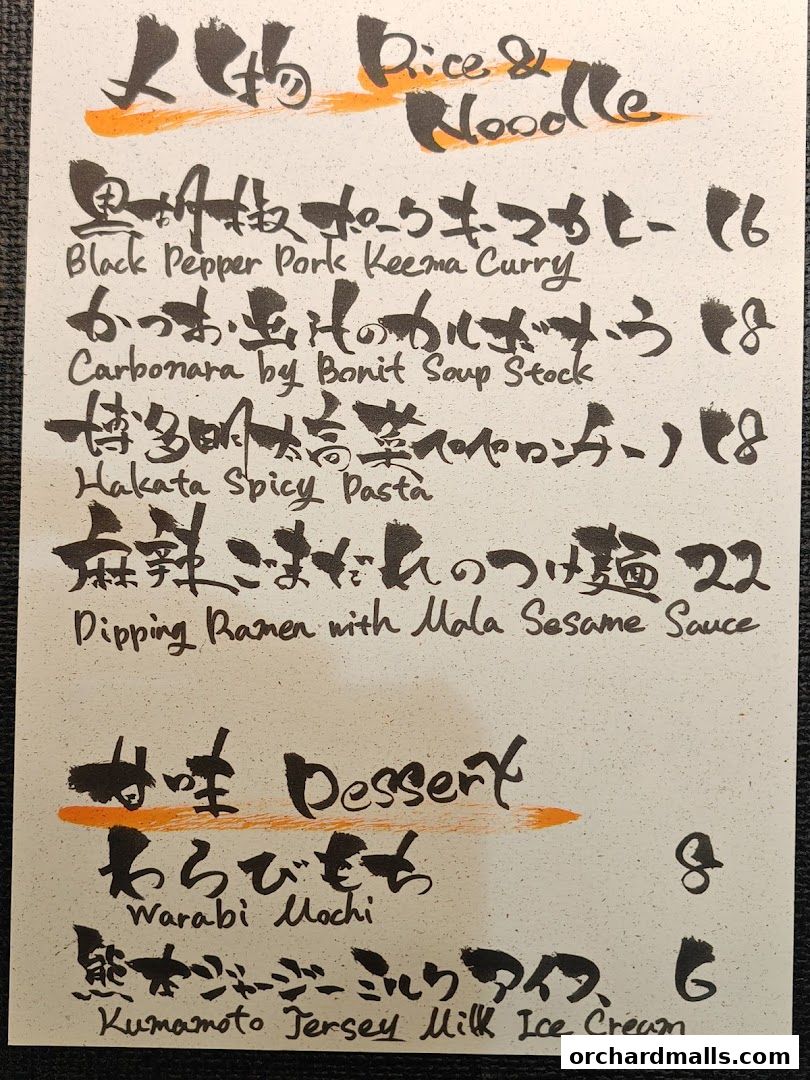 〆物 Rice &
Noodle
黒胡椒ポークキーマカレー 16
Black Pepper Pork Keema Curry
かつお出汁のカルボナーラ 18
Carbonara by Bonit Soup Stock
博多明太高菜ペペロンチーノ 18
Hakata Spicy Pasta
麻辣ごまだれのつけ麺 22
Dipping Ramen with Mala Sesame Sauce
甘味 Dessert
わらびもち 8
Warabi Mochi
熊本ジャージーミルクアイス 6
Kumamoto Jersey Milk Ice Cream
orchardmalls.com